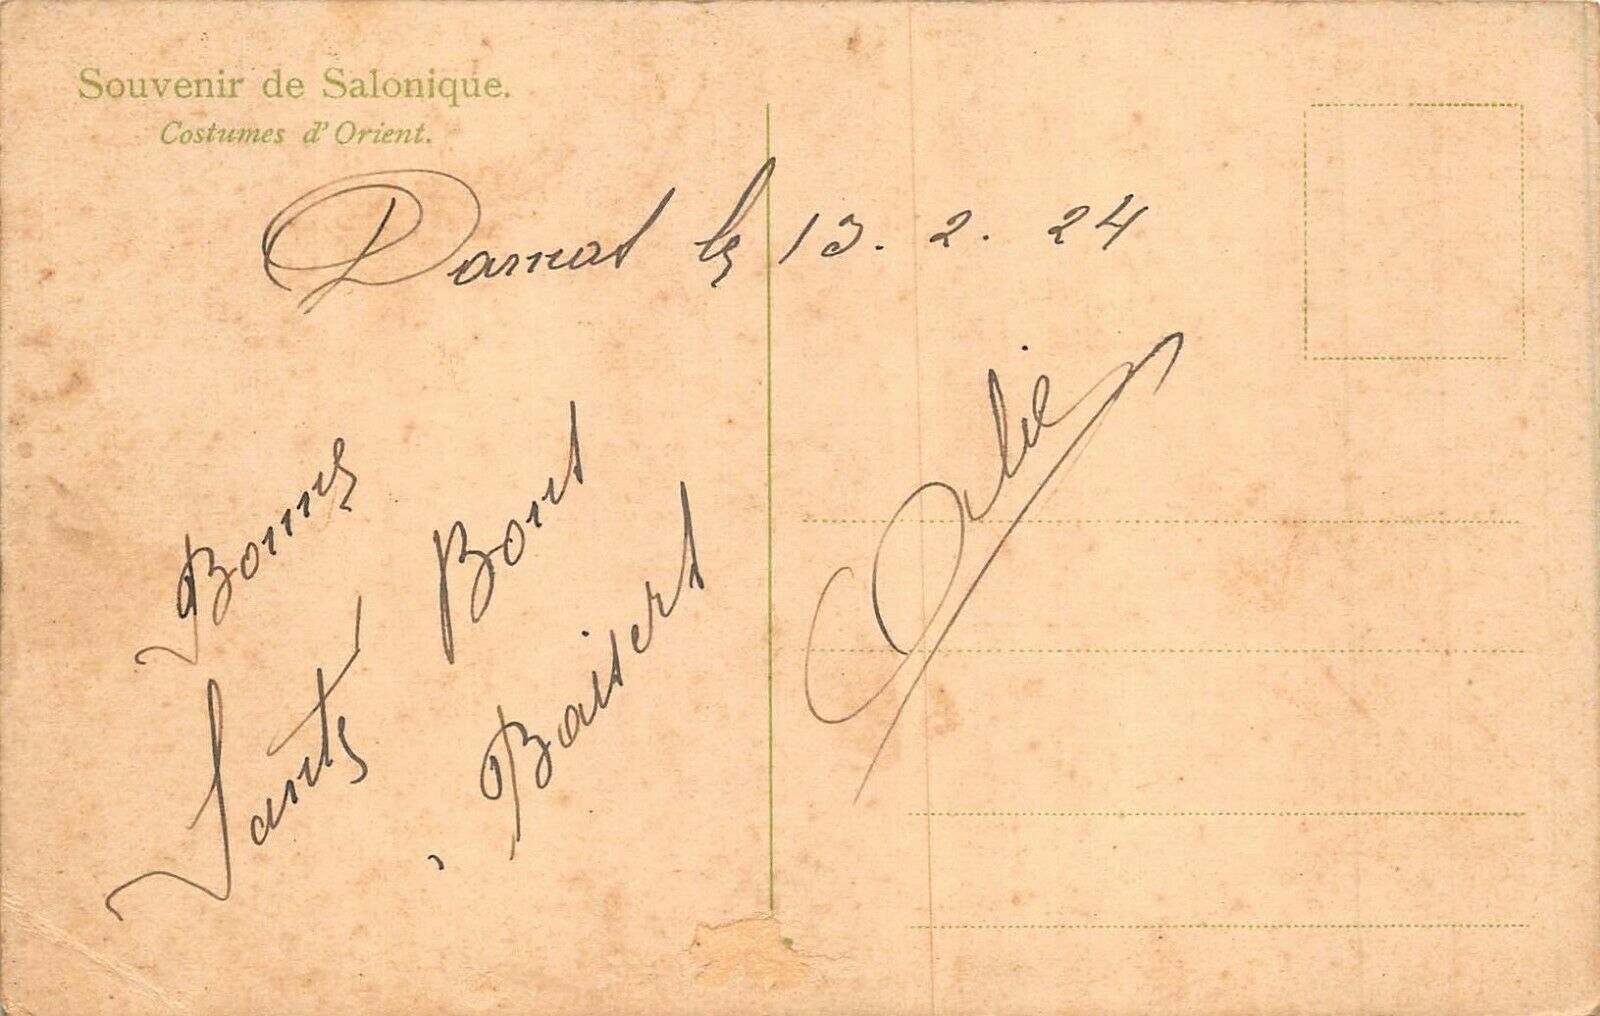 Souvenir de Salonique.
Costumes d'Orient.
le 13. 2. 24
Bonne
Santé
Bont
Baisert